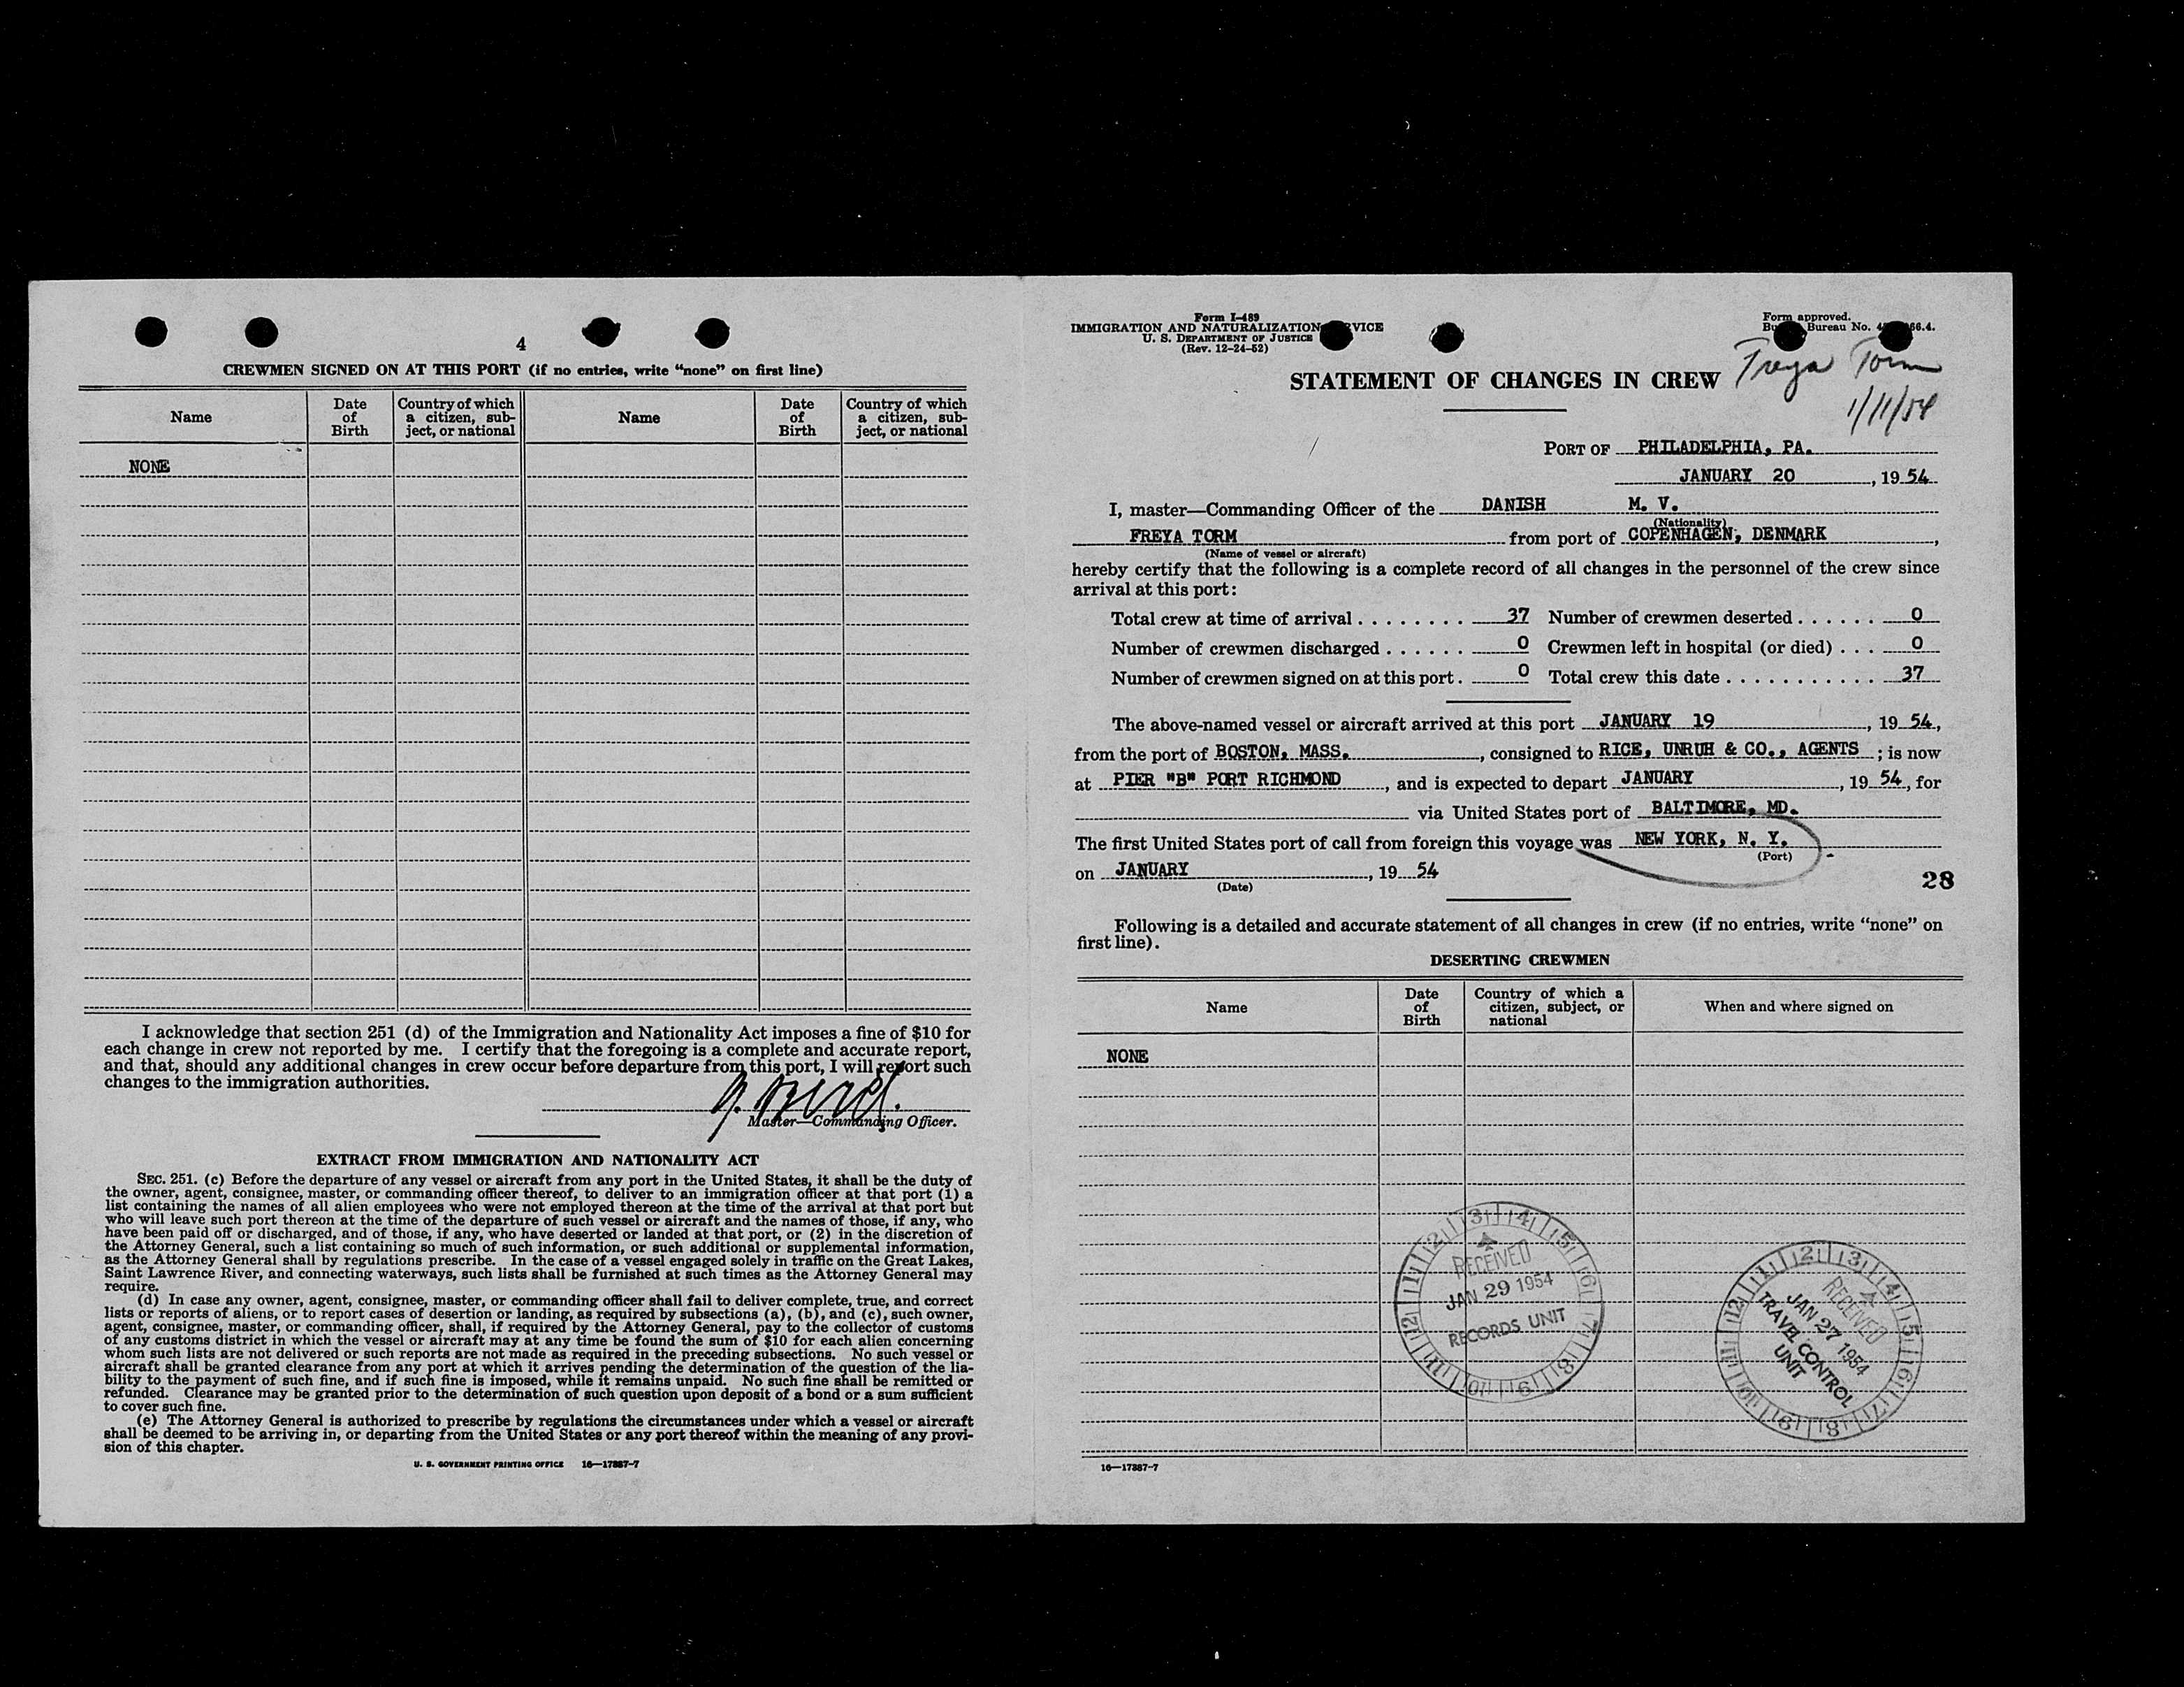 4
CREWMEN SIGNED ON AT THIS PORT (if no entries, write "none" on first line)
Name
Date of Birth
Country of which a citizen, sub-ject, or national
Name
Date of Birth
Country of which a citizen, sub-ject, or national
NONE
I acknowledge that section 251 (d) of the Immigration and Nationality Act imposes a fine of $10 for
each change in crew not reported by me. I certify that the foregoing is a complete and accurate report,
and that, should any additional changes in crew occur before departure from this port, I will report such
changes to the immigration authorities.
Master—Commanding Officer.
EXTRACT FROM IMMIGRATION AND NATIONALITY ACT
SEC. 251. (c) Before the departure of any vessel or aircraft from any port in the United States, it shall be the duty of
the owner, agent, consignee, master, or commanding officer thereof, to deliver to an immigration officer at that port (1) a
list containing the names of all alien employees who were not employed thereon at the time of the arrival at that port but
who will leave such port thereon at the time of the departure of such vessel or aircraft and the names of those, if any, who
have been paid off or discharged, and of those, if any, who have deserted or landed at that port, or (2) in the discretion of
the Attorney General, such a list containing so much of such information, or such additional or supplemental information,
as the Attorney General shall by regulations prescribe. In the case of a vessel engaged solely in traffic on the Great Lakes,
Saint Lawrence River, and connecting waterways, such lists shall be furnished at such times as the Attorney General may
require.
(d) In case any owner, agent, consignee, master, or commanding officer shall fail to deliver complete, true, and correct
lists or reports of aliens, or to report cases of desertion or landing, as required by subsections (a), (b), and (c), such owner,
agent, consignee, master, or commanding officer, shall, if required by the Attorney General, pay to the collector of customs
of any customs district in which the vessel or aircraft may at any time be found the sum of $10 for each alien concerning
whom such lists are not delivered or such reports are not made as required in the preceding subsections. No such vessel or
aircraft shall be granted clearance from any port at which it arrives pending the determination of the question of the lia-
bility to the payment of such fine, and if such fine is imposed, while it remains unpaid. No such fine shall be remitted or
refunded. Clearance may be granted prior to the determination of such question upon deposit of a bond or a sum sufficient
to cover such fine.
(e) The Attorney General is authorized to prescribe by regulations the circumstances under which a vessel or aircraft
shall be deemed to be arriving in, or departing from the United States or any port thereof within the meaning of any provi-
sion of this chapter.
U. S. GOVERNMENT PRINTING OFFICE 16—17887-7
Form I-489
IMMIGRATION AND NATURALIZATION
U. S. DEPARTMENT OF JUSTICE
(Rev. 12-24-52)
Form approved.
Bureau No.
Freya Torm
1/11/54
STATEMENT OF CHANGES IN CREW
PORT OF PHILADELPHIA, PA.
JANUARY 20, 19 54
I, master—Commanding Officer of the DANISH M. V.
(Nationality)
FREYA TORM from port of COPENHAGEN, DENMARK,
(Name of vessel or aircraft)
hereby certify that the following is a complete record of all changes in the personnel of the crew since
arrival at this port:
Total crew at time of arrival 37 Number of crewmen deserted 0
Number of crewmen discharged 0 Crewmen left in hospital (or died) 0
Number of crewmen signed on at this port 0 Total crew this date 37
The above-named vessel or aircraft arrived at this port JANUARY 19, 19 54,
from the port of BOSTON, MASS., consigned to RICE, UNRUH & CO., AGENTS ; is now
at PIER "B" PORT RICHMOND, and is expected to depart JANUARY, 19 54, for
via United States port of BALTIMORE, MD.
The first United States port of call from foreign this voyage was NEW YORK, N. Y.
(Port)
on JANUARY, 19 54
(Date)
28
Following is a detailed and accurate statement of all changes in crew (if no entries, write "none" on
first line).
DESERTING CREWMEN
Name
Date of Birth
Country of which a citizen, subject, or national
When and where signed on
NONE
RECEIVED
JAN 29 1954
RECORDS UNIT
RECEIVED
JAN 27 1954
TRAVEL CONTROL
UNIT
16—17887-7